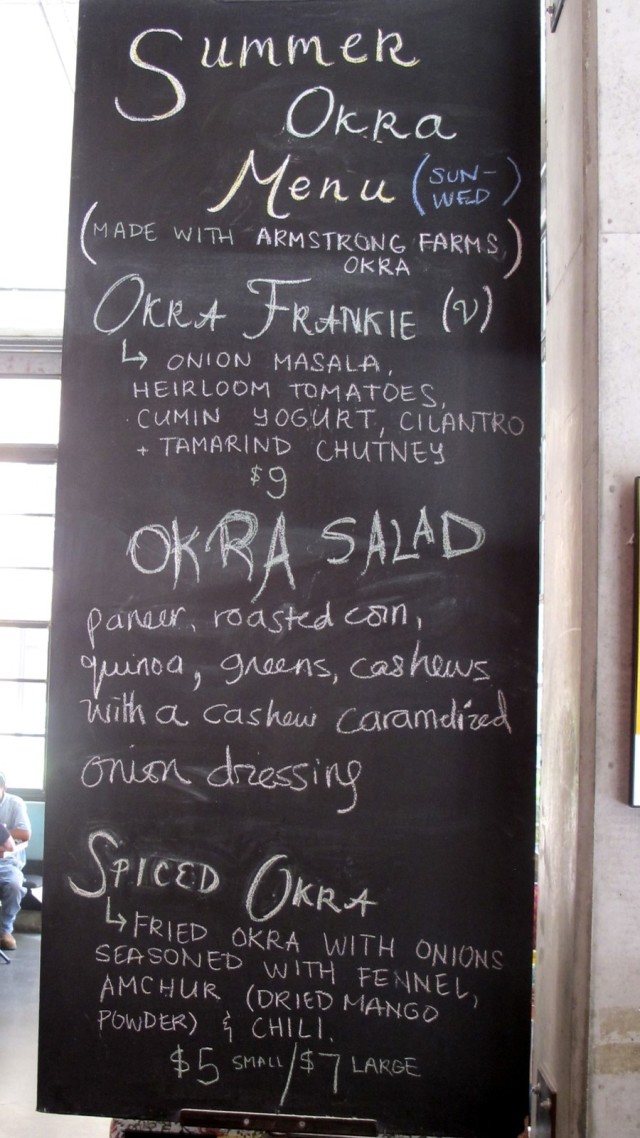 Summer
Okra
Menu (SUN-
WED)
(MADE WITH ARMSTRONG FARMS
OKRA)
OKRA FRANKIE (V)
↳ ONION MASALA,
HEIRLOOM TOMATOES,
CUMIN YOGURT, CILANTRO
+ TAMARIND CHUTNEY
$9
OKRA SALAD
paneer, roasted corn,
quinoa, greens, cashews
with a cashew caramelized
onion dressing
SPICED OKRA
↳ FRIED OKRA WITH ONIONS
SEASONED WITH FENNEL,
AMCHUR (DRIED MANGO
POWDER) & CHILI.
$5 SMALL/$7 LARGE